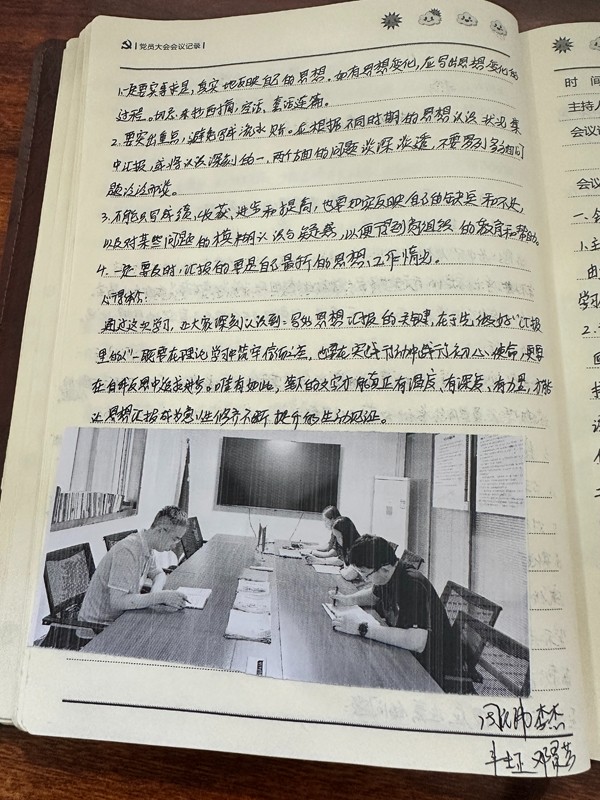 党员大会会议记录
1.一定要实事求是,真实地反映自己的思想。如有思想变化,应写出思想变化的
过程。切忌东抄西摘,空话、套话连篇。
2.要突出重点,避免写成流水账。应根据不同时期的思想认识状况集
中汇报,或将认识深刻的一、两个方面的问题谈深谈透,不要罗列多方面问
题泛泛而谈。
3.不能只写成绩、收获、进步和提高,也要如实反映自己的缺点和不足,
以及对某些问题的模糊认识与疑惑,以便得到党组织的教育和帮助。
4.一定要及时,汇报的要是自己最新的思想、工作情况。
通过这次学习,让大家深刻认识到:写出思想汇报的关键,在于先做好“汇报
里的人”一既要在理论学习中筑牢信仰之基,也要在实践行动中践行初心使命,更要
在自我反思中完成进步。唯有如此,笔下的文字才能真正有温度、有深度、有力量,才能
让思想汇报成为党性修养不断提升的生动见证。
李杰
时间
主持人
会议
会议
一、
1.
由
学习
2.
二